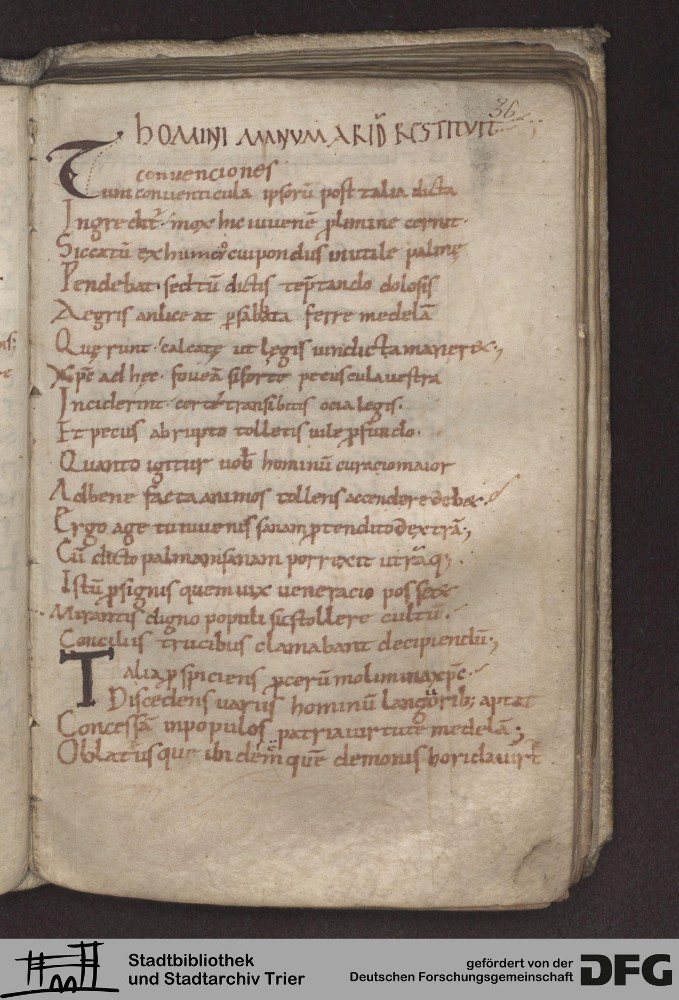 36
HOMINI MANUM ARIDĀ RESTITUIT
convenciones
Tum conventicula ipsorū post talia dicta
Ingredit̄ · mox hic iuvenē p limine cernit ·
Siccatū ex humero cui pondus inutile palmę
Pendebat · sed tū dictis tēptando dolosis
Aegris an liceat p sabbata ferre medelā
Quęrunt · calcatę ut legis vindicta maneret ·,
Xp̄c ad hęc · foveā si forte pecuscula vestra
Inciderint · certe transibitis ocia legis ·
Et pecus abrupto tolletis vile pfundo ·
Quanto igitur vob hominū curacio maior
Ad bene facta animos tollens accendere debet ·
Ergo age tu iuvenis sanam ptendito dextrā ·,
Cū dicto palmam sanam porrexit utraq;
Istū p signis quem vix veneracio posset
Mirantis digno populi sustollere cultū ·
Conciliis trucibus clamabant decipiendū ·,
Talia pspiciens pcerū molimina xp̄c ·
Discedens variis hominū langorib; aptat
Concessā in populos patria virtute medelā ·,
Oblatusque ibidem quē demonis horida virt
Stadtbibliothek
und Stadtarchiv Trier
gefördert von der
Deutschen Forschungsgemeinschaft
DFG